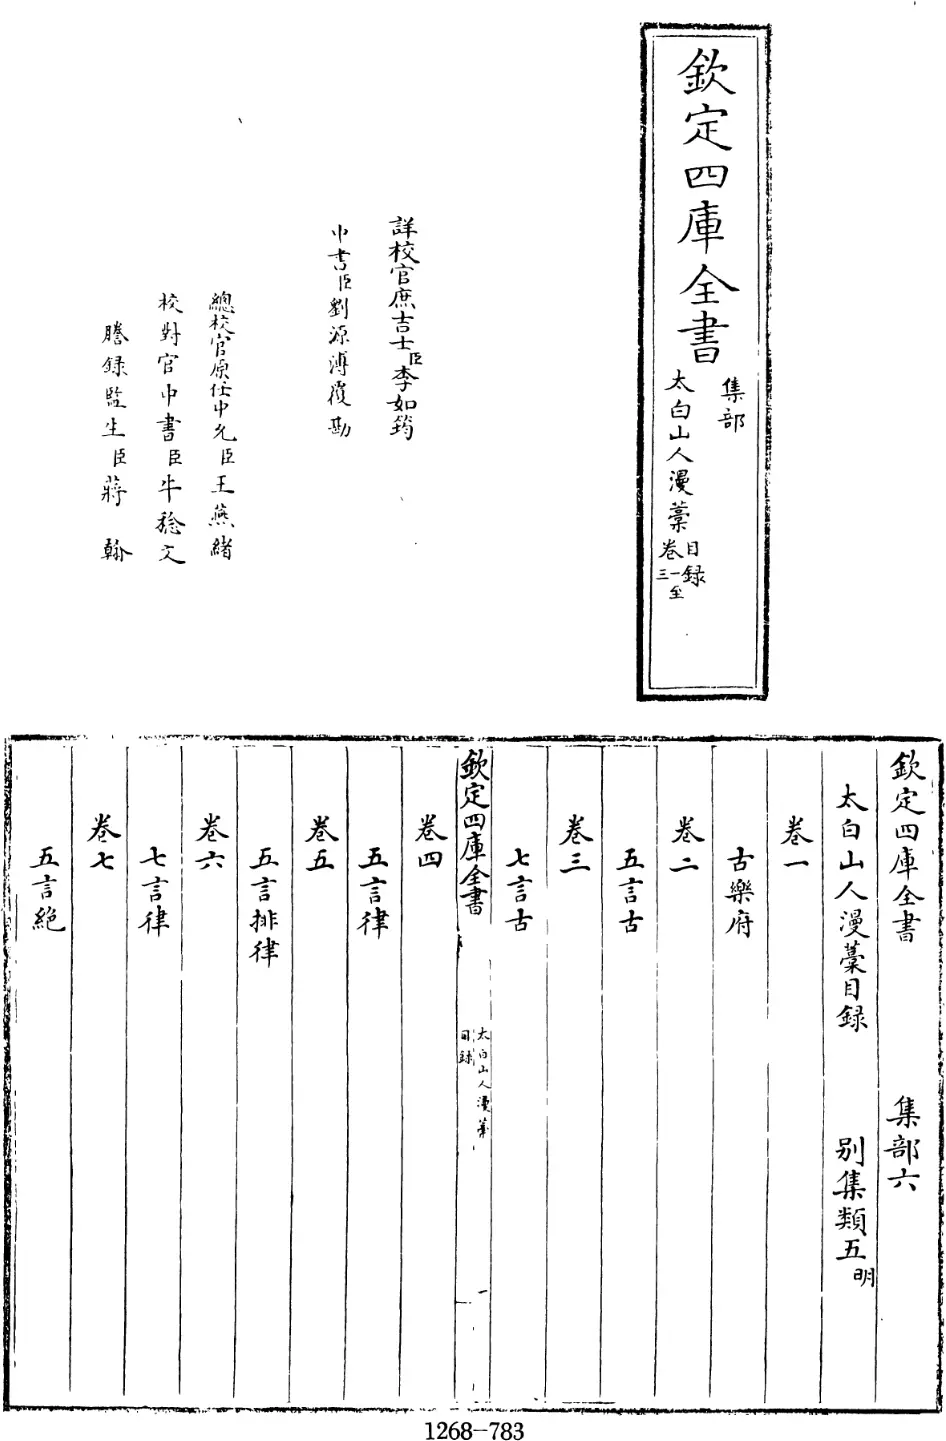 欽定四庫全書
集部
太白山人漫藁
目録
卷一至三
詳校官庶吉士臣李如筠
中書臣劉源溥覆勘
總校官原任中允臣王燕緒
校對官中書臣牛稔文
謄録監生臣蔣翰
欽定四庫全書 集部六
太白山人漫藁目録 别集類五明
卷一
古樂府
卷二
五言古
卷三
七言古
欽定四庫全書
太白山人漫藁
目録
一
卷四
五言律
卷五
五言排律
卷六
七言律
卷七
五言絶
1268-783